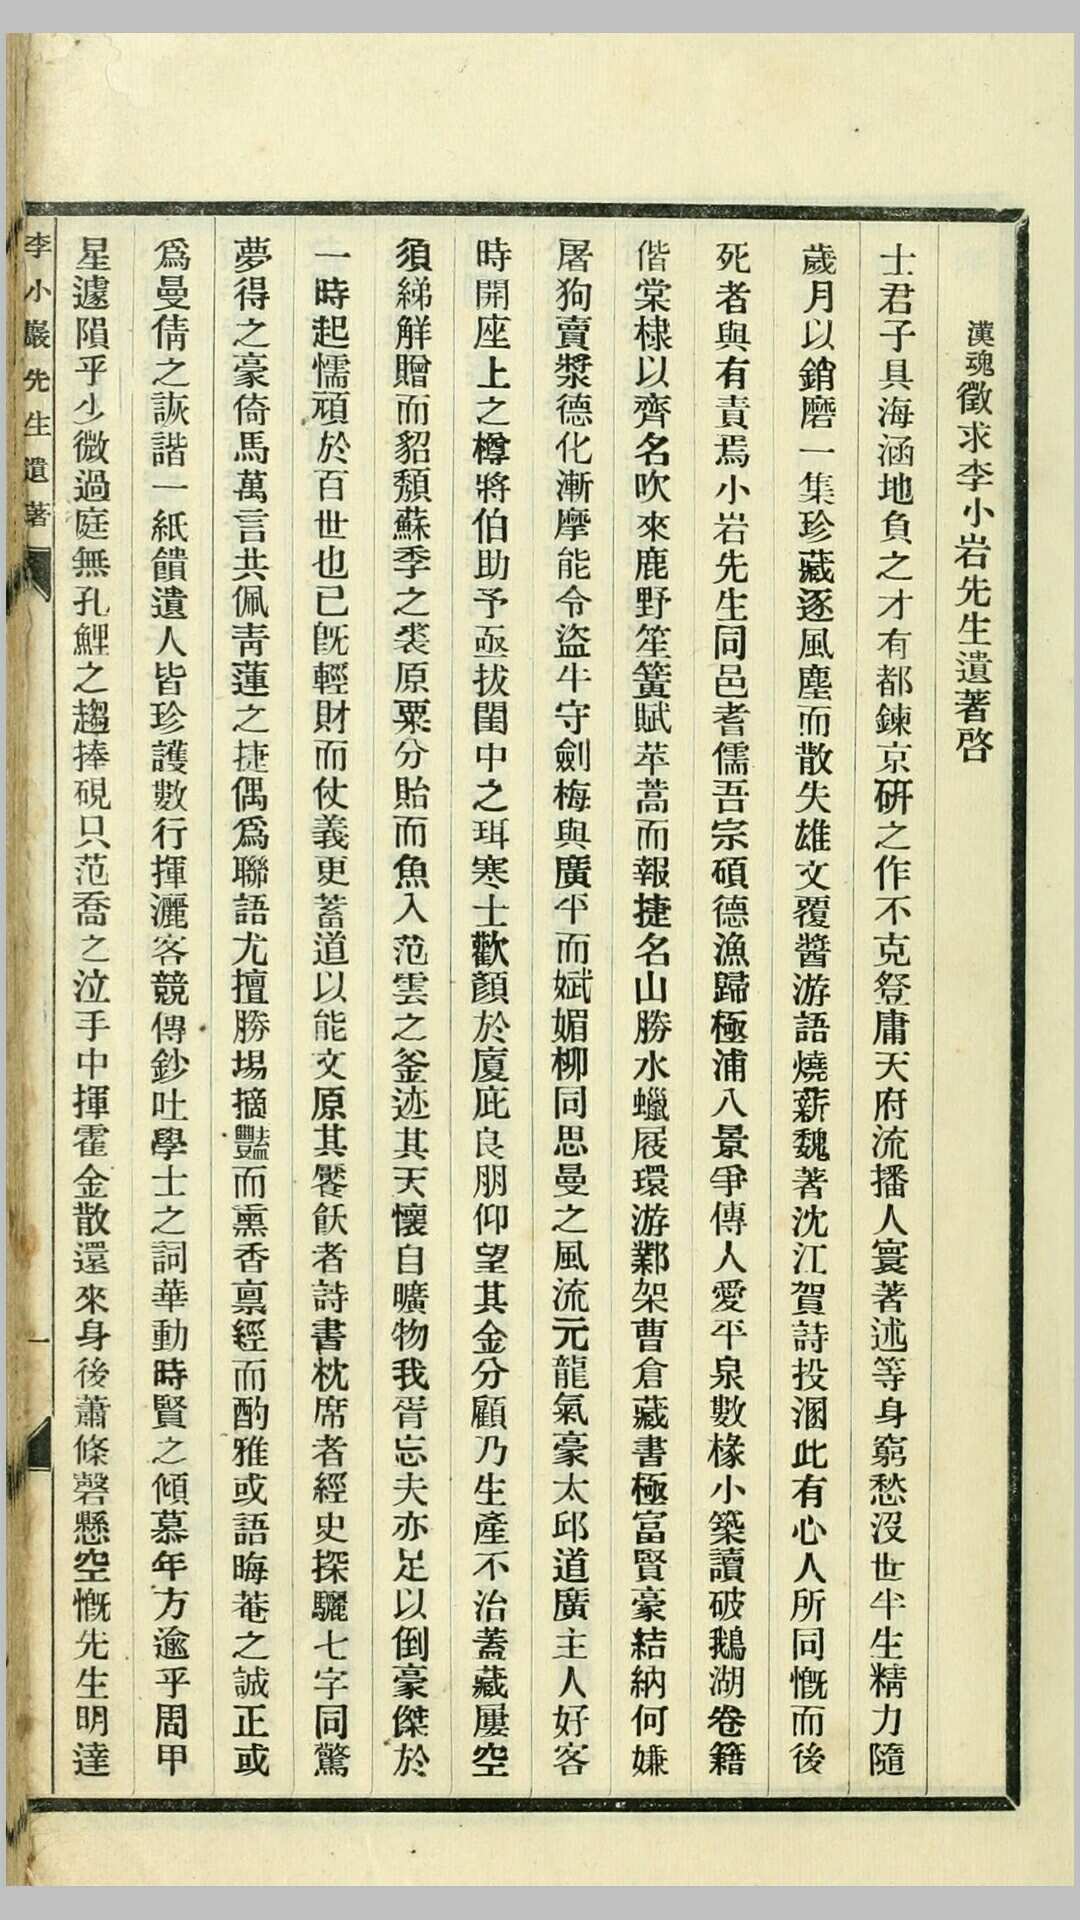 漢魂徵求李小岩先生遺著啓
士君子具海涵地負之才有都鍊京研之作不克登庸天府流播人寰著述等身窮愁沒世半生精力隨
歲月以銷磨一集珍藏逐風塵而散失雄文覆醬游語燒薪魏著沈江賀詩投溷此有心人所同慨而後
死者與有責焉小岩先生同邑耆儒吾宗碩德漁歸極浦八景爭傳人愛平泉數椽小築讀破鵝湖卷籍
偕棠棣以齊名吹來鹿野笙簧賦苹蒿而報捷名山勝水蠟屐環游鄴架曹倉藏書極富賢豪結納何嫌
屠狗賣漿德化漸摩能令盜牛守劍梅與廣平而娬媚柳同思曼之風流元龍氣豪太邱道廣主人好客
時開座上之樽將伯助予亟拔閨中之珥寒士歡顏於廈庇良朋仰望其金分顧乃生產不治蓋藏屢空
須綈觧贈而貂頽蘇季之裘原粟分貽而魚入范雲之釜迹其天懷自曠物我胥忘夫亦足以倒豪傑於
一時起懦頑於百世也已旣輕財而仗義更蓄道以能文原其饜飫者詩書枕席者經史探驪七字同驚
夢得之豪倚馬萬言共佩靑蓮之捷偶爲聯語尤擅勝場摘豔而熏香禀經而酌雅或語晦菴之誠正或
爲曼倩之詼諧一紙饋遺人皆珍護數行揮灑客競傳鈔吐學士之詞華動時賢之傾慕年方逾乎周甲
星遽隕乎少微過庭無孔鯉之趨捧硯只范喬之泣手中揮霍金散還來身後蕭條磬懸空慨先生明達
李小巖先生遺著
一